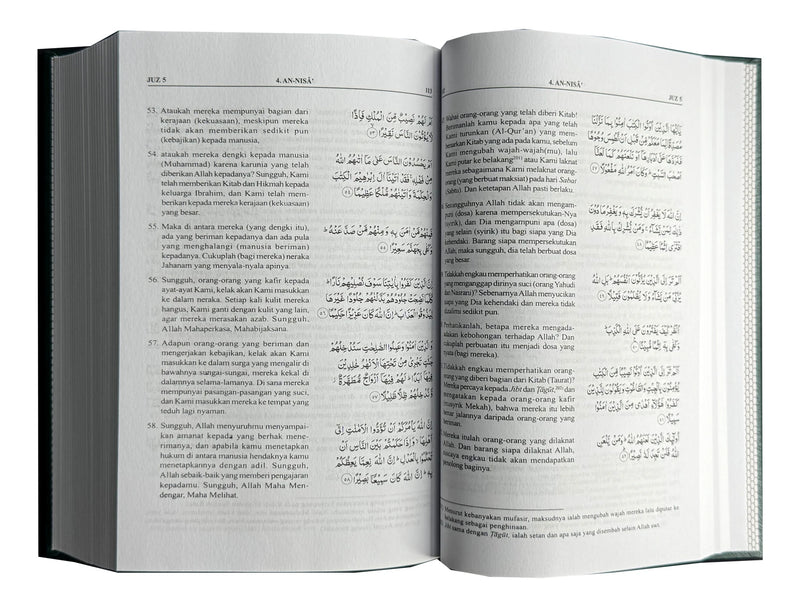 JUZ 5
4. AN-NISĀ'
113
53. Ataukah mereka mempunyai bagian dari
kerajaan (kekuasaan), meskipun mereka
tidak akan memberikan sedikit pun
(kebajikan) kepada manusia,
لَهُمْ نَصِيْبٌ مِّنَ الْمُلْكِ فَاِذًا
لَّا يُؤْتُوْنَ النَّاسَ نَقِيْرًا ۙ ٥٣
54. ataukah mereka dengki kepada manusia
(Muhammad) karena karunia yang telah
diberikan Allah kepadanya? Sungguh, Kami
telah memberikan Kitab dan Hikmah kepada
keluarga Ibrahim, dan Kami telah mem-
berikan kepada mereka kerajaan (kekuasaan)
yang besar.
يَحْسُدُوْنَ النَّاسَ عَلٰى مَآ اٰتٰىهُمُ اللّٰهُ
مِنْ فَضْلِهٖۚ فَقَدْ اٰتَيْنَآ اٰلَ اِبْرٰهِيْمَ الْكِتٰبَ
وَالْحِكْمَةَ وَاٰتَيْنٰهُمْ مُّلْكًا عَظِيْمًا ٥٤
55. Maka di antara mereka (yang dengki itu),
ada yang beriman kepadanya dan ada pula
yang menghalangi (manusia beriman)
kepadanya. Cukuplah (bagi mereka) neraka
Jahanam yang menyala-nyala apinya.
فَمِنْهُمْ مَّنْ اٰمَنَ بِهٖ وَمِنْهُمْ مَّنْ صَدَّ عَنْهُۗ
وَكَفٰى بِجَهَنَّمَ سَعِيْرًا ٥٥
56. Sungguh, orang-orang yang kafir kepada
ayat-ayat Kami, kelak akan Kami masukkan
ke dalam neraka. Setiap kali kulit mereka
hangus, Kami ganti dengan kulit yang lain,
agar mereka merasakan azab. Sungguh,
Allah Mahaperkasa, Mahabijaksana.
اِنَّ الَّذِيْنَ كَفَرُوْا بِاٰيٰتِنَا سَوْفَ نُصْلِيْهِمْ نَارًاۗ
كُلَّمَا نَضِجَتْ جُلُوْدُهُمْ بَدَّلْنٰهُمْ جُلُوْدًا غَيْرَهَا
لِيَذُوْقُوا الْعَذَابَۗ اِنَّ اللّٰهَ كَانَ عَزِيْزًا حَكِيْمًا ٥٦
57. Adapun orang-orang yang beriman dan
mengerjakan kebajikan, kelak akan Kami
masukkan ke dalam surga yang mengalir di
bawahnya sungai-sungai, mereka kekal di
dalamnya selama-lamanya. Di sana mereka
mempunyai pasangan-pasangan yang suci,
dan Kami masukkan mereka ke tempat yang
teduh lagi nyaman.
وَالَّذِيْنَ اٰمَنُوْا وَعَمِلُوا الصّٰلِحٰتِ سَنُدْخِلُهُمْ
جَنّٰتٍ تَجْرِيْ مِنْ تَحْتِهَا الْاَنْهٰرُ خٰلِدِيْنَ
فِيْهَآ اَبَدًاۗ لَهُمْ فِيْهَآ اَزْوَاجٌ مُّطَهَّرَةٌ
وَّنُدْخِلُهُمْ ظِلًّا ظَلِيْلًا ٥٧
58. Sungguh, Allah menyuruhmu menyampai-
kan amanat kepada yang berhak mene-
rimanya, dan apabila kamu menetapkan
hukum di antara manusia hendaknya kamu
menetapkannya dengan adil. Sungguh,
Allah sebaik-baik yang memberi pengajaran
kepadamu. Sungguh, Allah Maha Men-
dengar, Maha Melihat.
اِنَّ اللّٰهَ يَأْمُرُكُمْ اَنْ تُؤَدُّوا الْاَمٰنٰتِ اِلٰٓى
اَهْلِهَاۙ وَاِذَا حَكَمْتُمْ بَيْنَ النَّاسِ اَنْ
تَحْكُمُوْا بِالْعَدْلِۗ اِنَّ اللّٰهَ نِعِمَّا يَعِظُكُمْ
بِهٖۗ اِنَّ اللّٰهَ كَانَ سَمِيْعًاۢ بَصِيْرًا ٥٨
4. AN-NISĀ'
JUZ 5
Wahai orang-orang yang telah diberi Kitab!
Berimanlah kamu kepada apa yang telah
Kami turunkan (Al-Qur'an) yang mem-
benarkan Kitab yang ada pada kamu, sebelum
Kami mengubah wajah-wajah(mu), lalu
Kami putar ke belakang atau Kami laknat
mereka sebagaimana Kami melaknat orang-
orang (yang berbuat maksiat) pada hari Sabat
(Sabtu). Dan ketetapan Allah pasti berlaku.
يٰٓاَيُّهَا الَّذِيْنَ اُوْتُوا الْكِتٰبَ اٰمِنُوْا بِمَا نَزَّلْنَا
مُصَدِّقًا لِّمَا مَعَكُمْ مِّنْ قَبْلِ اَنْ نَّطْمِسَ وُجُوْهًا
فَنَرُدَّهَا عَلٰٓى اَدْبَارِهَآ اَوْ نَلْعَنَهُمْ كَمَا لَعَنَّآ
اَصْحٰبَ السَّبْتِۗ وَكَانَ اَمْرُ اللّٰهِ مَفْعُوْلًا ٤٧
Sesungguhnya Allah tidak akan mengam-
puni (dosa) karena mempersekutukan-Nya
(syirik), dan Dia mengampuni apa (dosa)
yang selain (syirik) itu bagi siapa yang Dia
kehendaki. Barang siapa mempersekutukan
Allah, maka sungguh, dia telah berbuat dosa
yang besar.
اِنَّ اللّٰهَ لَا يَغْفِرُ اَنْ يُّشْرَكَ بِهٖ وَيَغْفِرُ مَا دُوْنَ
ذٰلِكَ لِمَنْ يَّشَاۤءُۚ وَمَنْ يُّشْرِكْ بِاللّٰهِ فَقَدِ
افْتَرٰٓى اِثْمًا عَظِيْمًا ٤٨
Tidakkah engkau memperhatikan orang-orang
yang menganggap dirinya suci (orang Yahudi
dan Nasrani)? Sebenarnya Allah menyucikan
siapa yang Dia kehendaki dan mereka tidak
dizalimi sedikit pun.
اَلَمْ تَرَ اِلَى الَّذِيْنَ يُزَكُّوْنَ اَنْفُسَهُمْۗ بَلِ اللّٰهُ
يُزَكِّيْ مَنْ يَّشَاۤءُ وَلَا يُظْلَمُوْنَ فَتِيْلًا ٤٩
Perhatikanlah, betapa mereka mengada-
adakan kebohongan terhadap Allah? Dan
cukuplah perbuatan itu menjadi dosa yang
nyata (bagi mereka).
اُنْظُرْ كَيْفَ يَفْتَرُوْنَ عَلَى اللّٰهِ الْكَذِبَۗ
وَكَفٰى بِهٖٓ اِثْمًا مُّبِيْنًا ٥٠
Tidakkah engkau memperhatikan orang-
orang yang diberi bagian dari Kitab (Taurat)?
Mereka percaya kepada Jibt dan Ṭāgūt, dan
mengatakan kepada orang-orang kafir
(musyrik Mekah), bahwa mereka itu lebih
benar jalannya daripada orang-orang yang
beriman.
اَلَمْ تَرَ اِلَى الَّذِيْنَ اُوْتُوْا نَصِيْبًا مِّنَ الْكِتٰبِ
يُؤْمِنُوْنَ بِالْجِبْتِ وَالطَّاغُوْتِ وَيَقُوْلُوْنَ لِلَّذِيْنَ
كَفَرُوْا هٰٓؤُلَاۤءِ اَهْدٰى مِنَ الَّذِيْنَ اٰمَنُوْا
سَبِيْلًا ٥١
Mereka itulah orang-orang yang dilaknat
Allah. Dan barang siapa dilaknat Allah,
niscaya engkau tidak akan mendapatkan
penolong baginya.
اُولٰۤىِٕكَ الَّذِيْنَ لَعَنَهُمُ اللّٰهُ ۗوَمَنْ يَّلْعَنِ
اللّٰهُ فَلَنْ تَجِدَ لَهٗ نَصِيْرًا ٥٢
Menurut kebanyakan mufasir, maksudnya ialah mengubah wajah mereka lalu diputar ke
belakang sebagai penghinaan.
Jibt sama dengan Ṭāgūt, ialah setan dan apa saja yang disembah selain Allah swt.